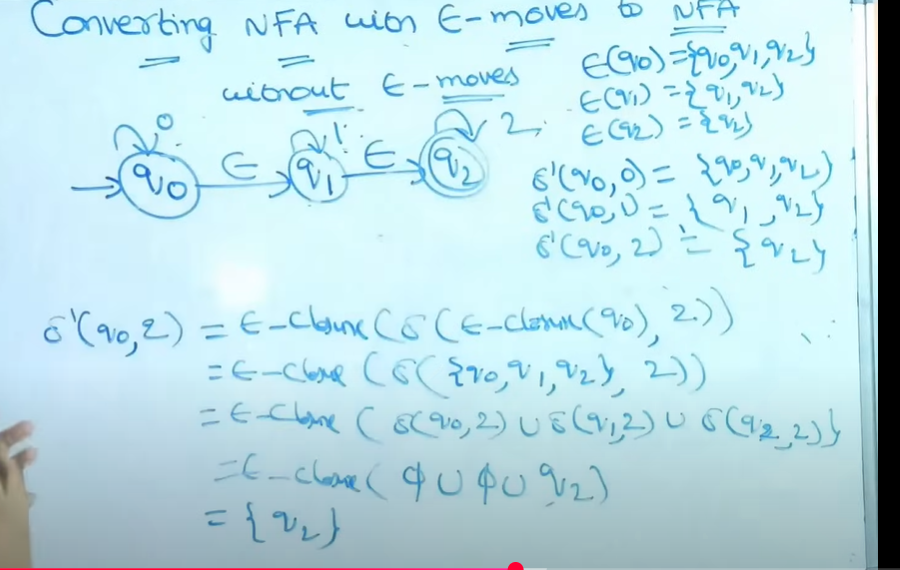 Converting NFA with ϵ-moves to NFA
without ϵ-moves
ϵ(q0) = {q0,q1,q2}
ϵ(q1) = {q1,q2}
ϵ(q2) = {q2}
0
1
2
ϵ
ϵ
q0
q1
q2
δ'(q0,0) = {q0,q1,q2}
δ'(q0,1) = {q1,q2}
δ'(q0,2) = {q2}
δ'(q0,2) = ϵ-closure(δ(ϵ-closure(q0), 2))
= ϵ-closure (δ({q0,q1,q2}, 2))
= ϵ-closure (δ(q0,2) ∪ δ(q1,2) ∪ δ(q2,2)}
= ϵ-closure(ϕ ∪ ϕ ∪ q2)
= {q2}